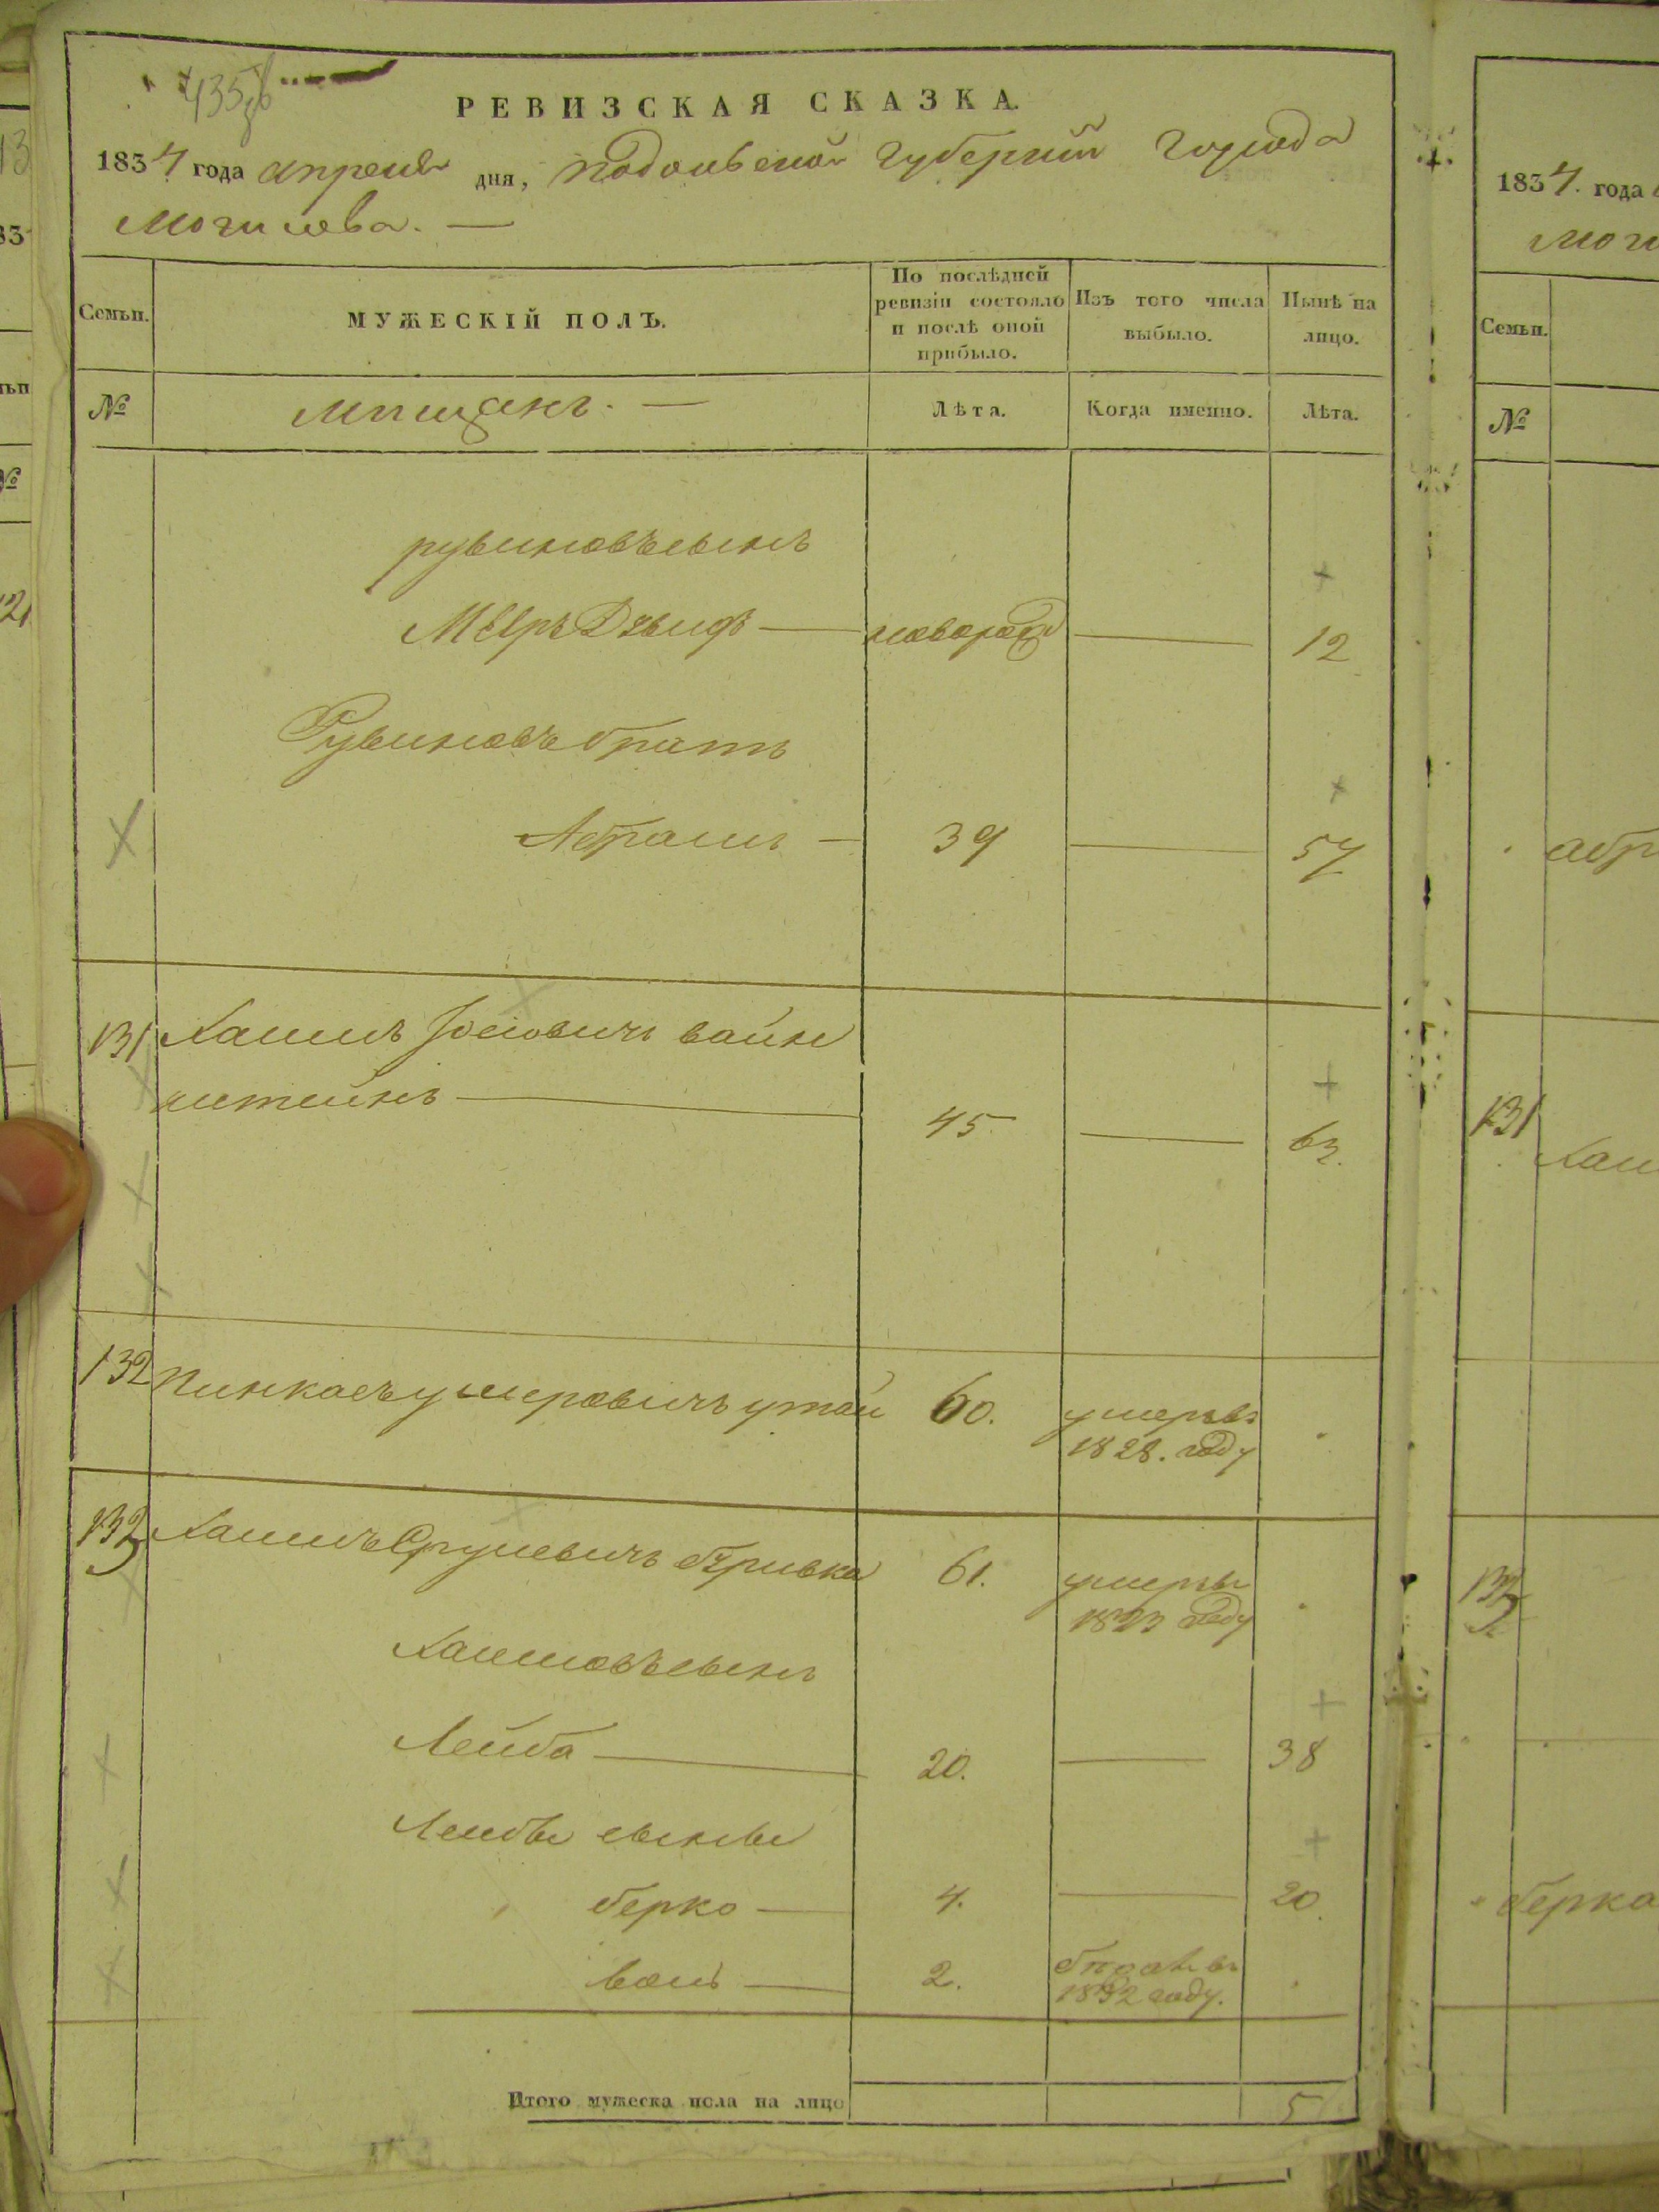 435
РЕВИЗСКАЯ СКАЗКА.
1834 года апреля дня, Подольской Губернии Города
Могилева. —
Семьи.
МУЖЕСКІЙ ПОЛЪ.
По послѣдней ревизіи состояло и послѣ оной прибыло.
Изъ того числа выбыло.
Нынѣ на лицо.
№
Мѣщанъ. —
Лѣта.
Когда именно.
Лѣта.
рувиновъ сынъ
Меръ новорожд 12
Рувиновъ братъ
Абрамъ — 39 57
131 Хаимъ Іосіовичъ вайн
штейнъ 45 63.
132 Пинкасъ умеровичъ 60. умеръ въ
1828. году
133 Хаимъ Сруневичъ 61. умеръ въ
1823 году
Хаимовъ сынъ
Лейба 20. 38
Лейбы сыновья
берко — 4. 20.
2.
1832 году.
Итого мужеска пола на лицо 5
1834. года
Семьи.
№
131
133
берка